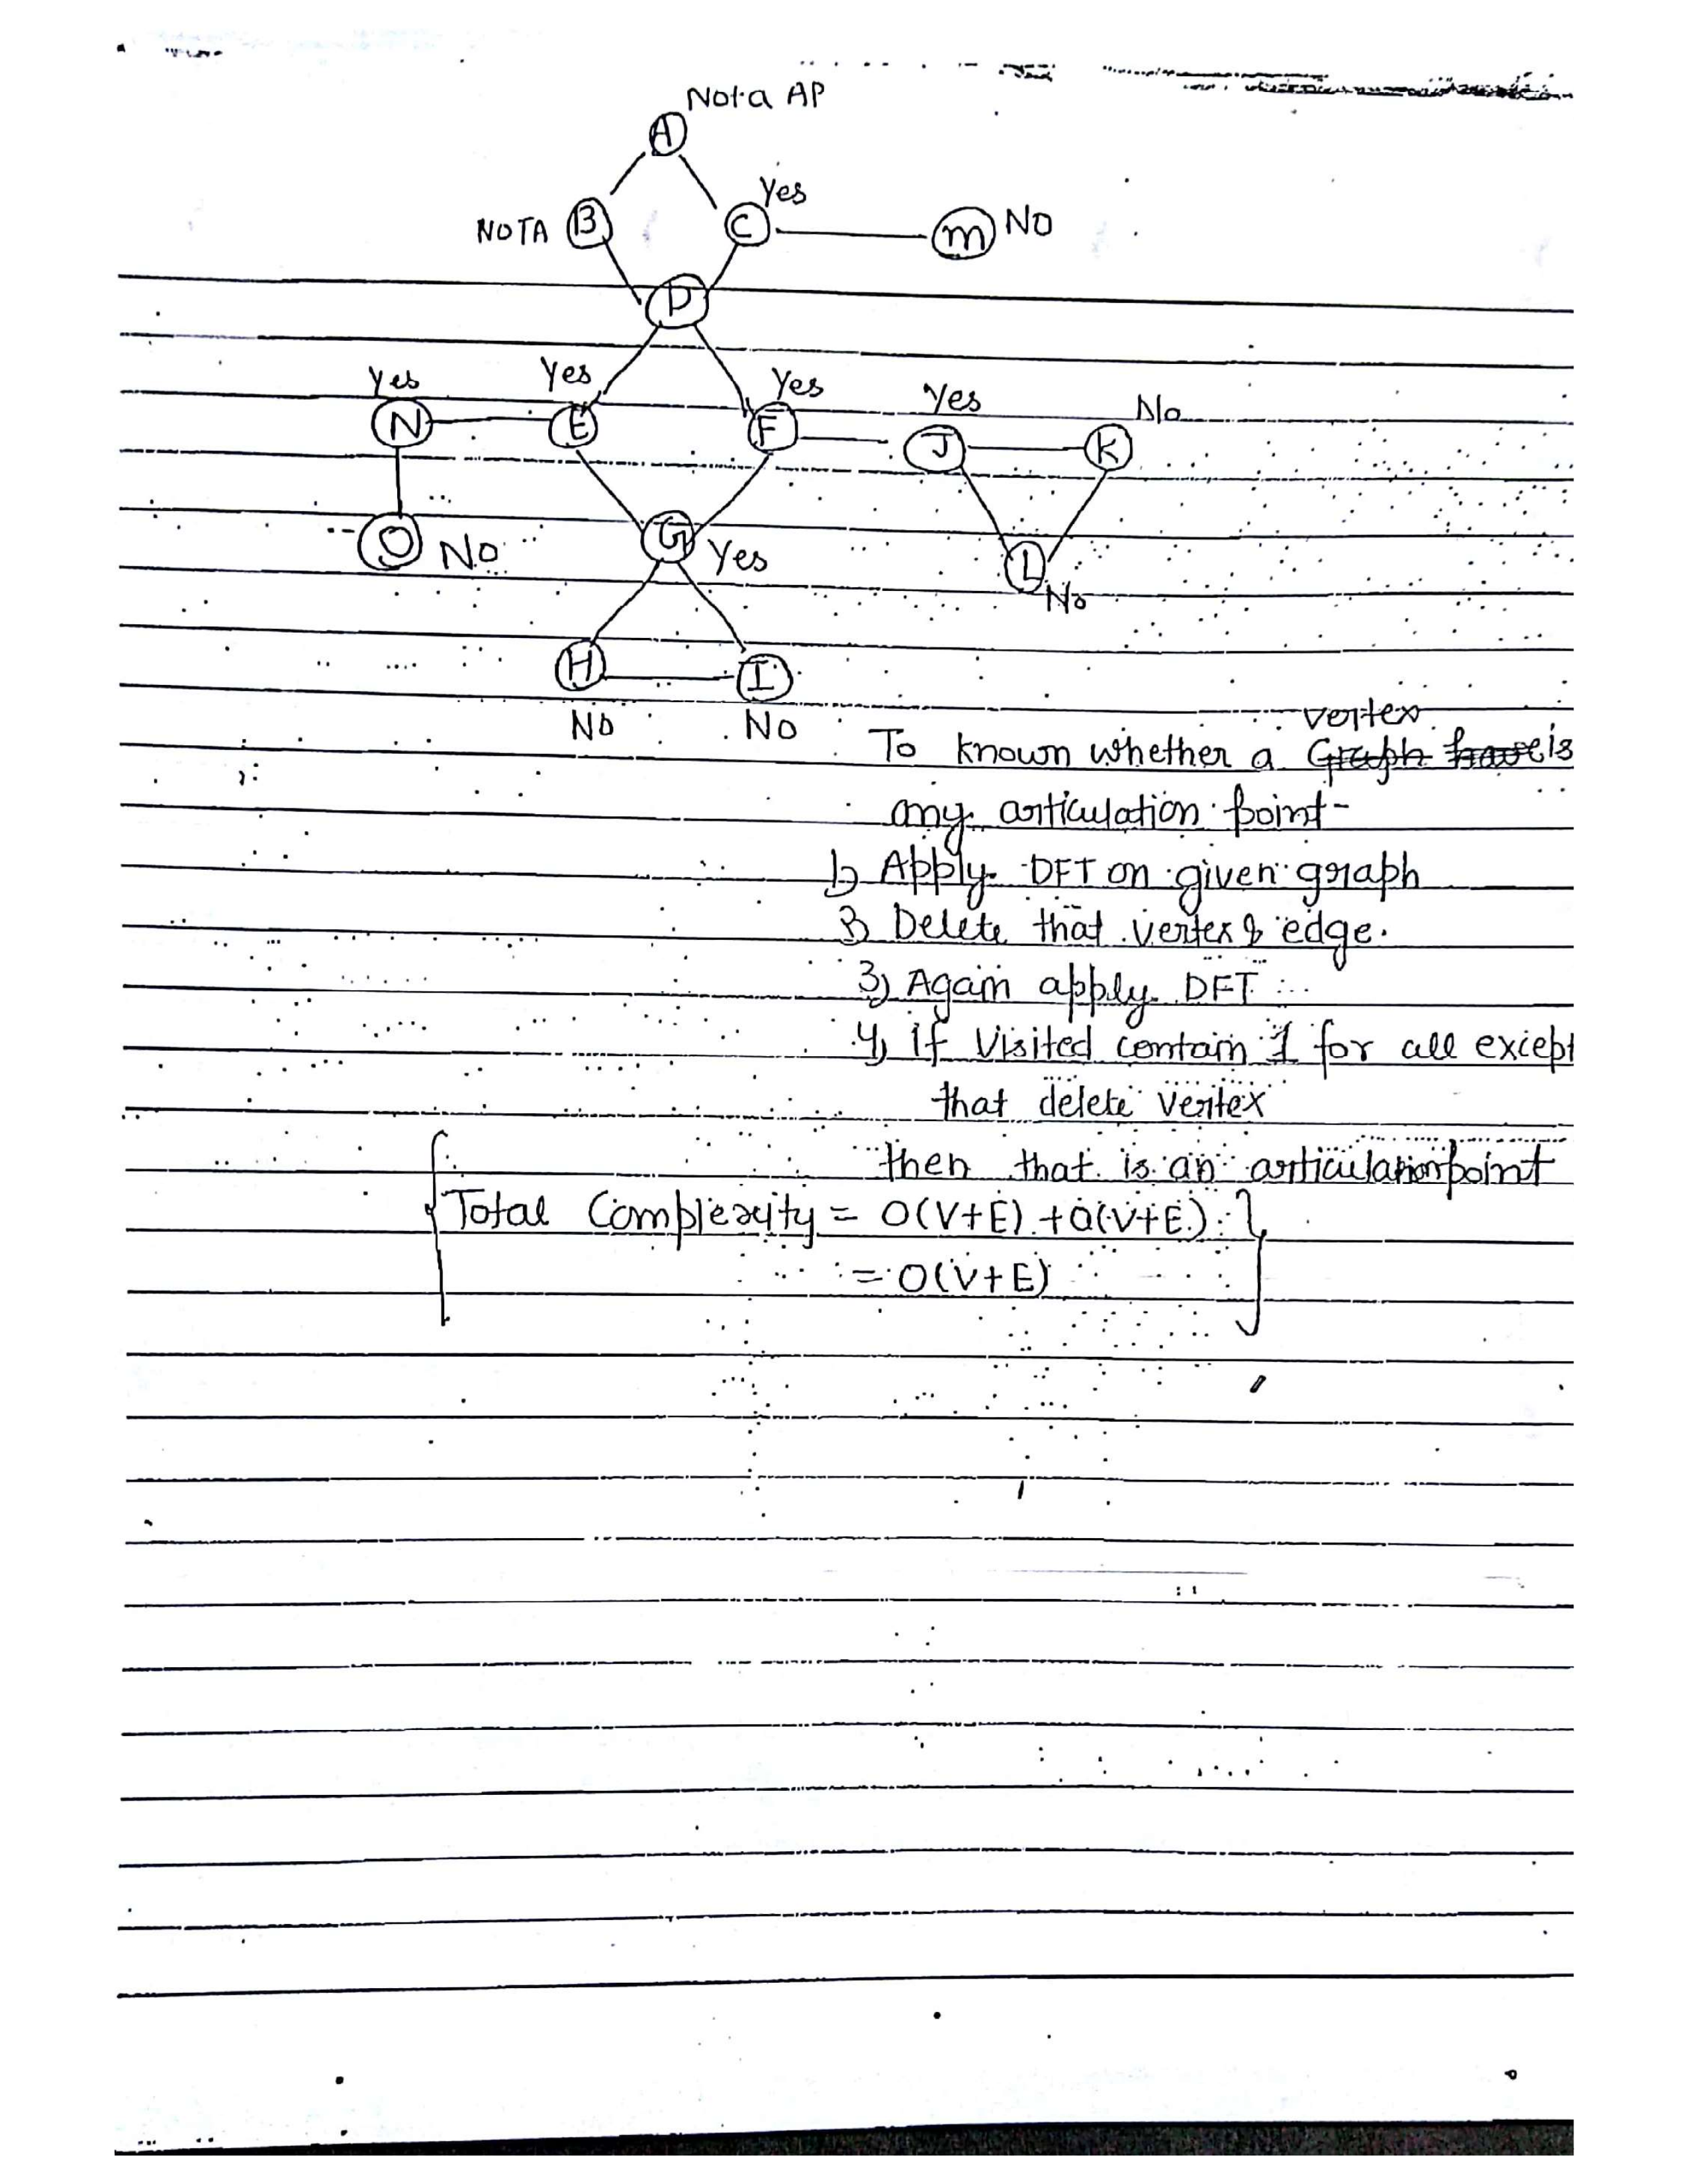 Not a AP
A
Yes
NOTA B C m NO
D
Yes Yes Yes Yes No
N E F J K
O No G Yes L
No
H I
No No
vertex
To known whether a Graph have is
any articulation point-
1) Apply DFT on given graph
2) Delete that vertex & edge.
3) Again apply DFT
4) if Visited contain 1 for all except
that delete vertex
then that is an articulation point
Total Complexity = O(V+E) + O(V+E)
= O(V+E)